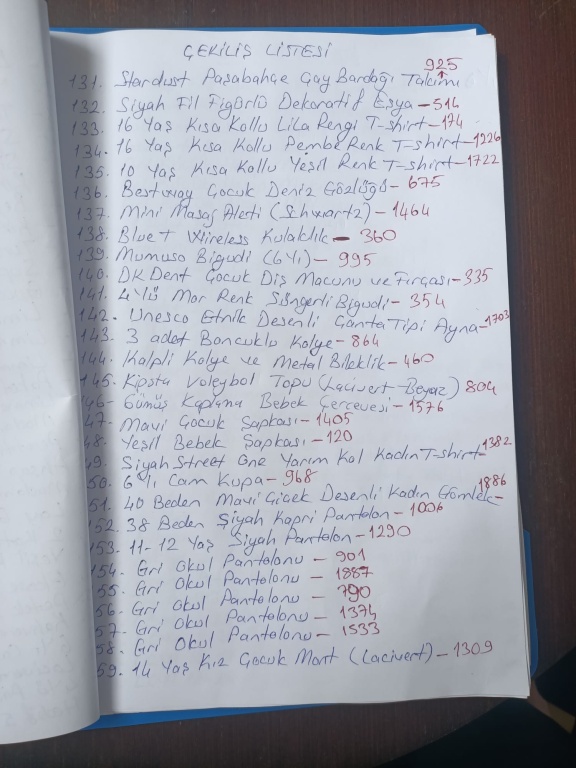 ÇEKİLİŞ LİSTESİ
925
131. Stardust Paşabahçe Çay Bardağı Takımı
132. Siyah Fil Figürlü Dekoratif Eşya - 514
133. 16 Yaş Kısa Kollu Lila Rengi T-shirt - 174
134. 16 Yaş Kısa Kollu Pembe Renk T-shirt - 1226
135. 10 Yaş Kısa Kollu Yeşil Renk T-shirt - 1722
136. Bestway Çocuk Deniz Gözlüğü - 675
137. Mini Masaj Aleti (Schwartz) - 1464
138. Bluet Wireless Kulaklık - 360
139. Mumuso Bigudi (6'lı) - 995
140. DK Dent Çocuk Diş Macunu ve Fırçası - 335
141. 4'lü Mor Renk Süngerli Bigudi - 354
142. Unesco Etnik Desenli Çanta Tipi Ayna - 1703
143. 3 adet Boncuklu Kolye - 864
144. Kalpli Kolye ve Metal Bileklik - 460
145. Kipsta Voleybol Topu (Lacivert-Beyaz) 804
146. Gümüş Kaplama Bebek Çerçevesi - 1576
47. Mavi Çocuk Şapkası - 1405
48. Yeşil Bebek Şapkası - 120
49. Siyah Street One Yarım Kol Kadın T-shirt - 1382
50. 6'lı Cam Kupa - 968
51. 40 Beden Mavi Çiçek Desenli Kadın Gömlek - 1886
152. 38 Beden Siyah Kapri Pantolon - 1006
153. 11-12 Yaş Siyah Pantolon - 1290
154. Gri Okul Pantolonu - 901
55. Gri Okul Pantolonu - 1887
56. Gri Okul Pantolonu - 790
57. Gri Okul Pantolonu - 1374
58. Gri Okul Pantolonu - 1533
59. 14 Yaş Kız Çocuk Mont (Lacivert) - 1309